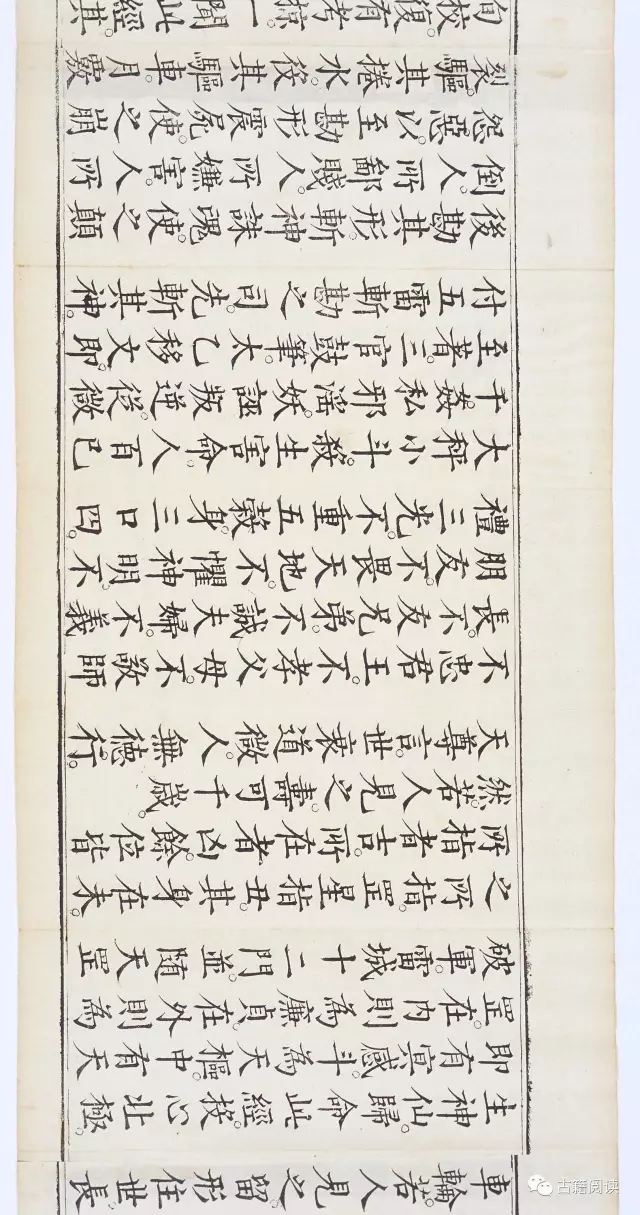 車輪。若人見之。留形住世。長
生神仙。歸命此經。投心北極。
即有冥感。斗為天樞。中有天
罡。在內則為廉貞。在外則為
破軍。雷城十二門。並隨天罡
之所指。罡星指丑。其身在未。
所指者吉。所在者凶。餘位皆
然。若人見之。壽可千歲。
天尊言。世衰道微。人無德行。
不忠君王。不孝父母。不敬師
長。不友兄弟。不誠夫婦。不義
朋友。不畏天地。不懼神明。不
禮三光。不重五穀。身三口四。
大秤小斗。殺生害命。人百己
千。姦私邪淫。妖誣叛逆。從微
至著。三官鼓筆。太乙移文。即
付五雷斬勘之司。先斬其神。
後勘其形。斬神誅魂。使之顛
倒。人所鄙賤。人所嫌害。人所
怨惡。以至勘形震屍。使之崩
裂。驅其捲水。役其驅車。月覈
旬校。復有考掠。一聞此經。其
古籍阅读